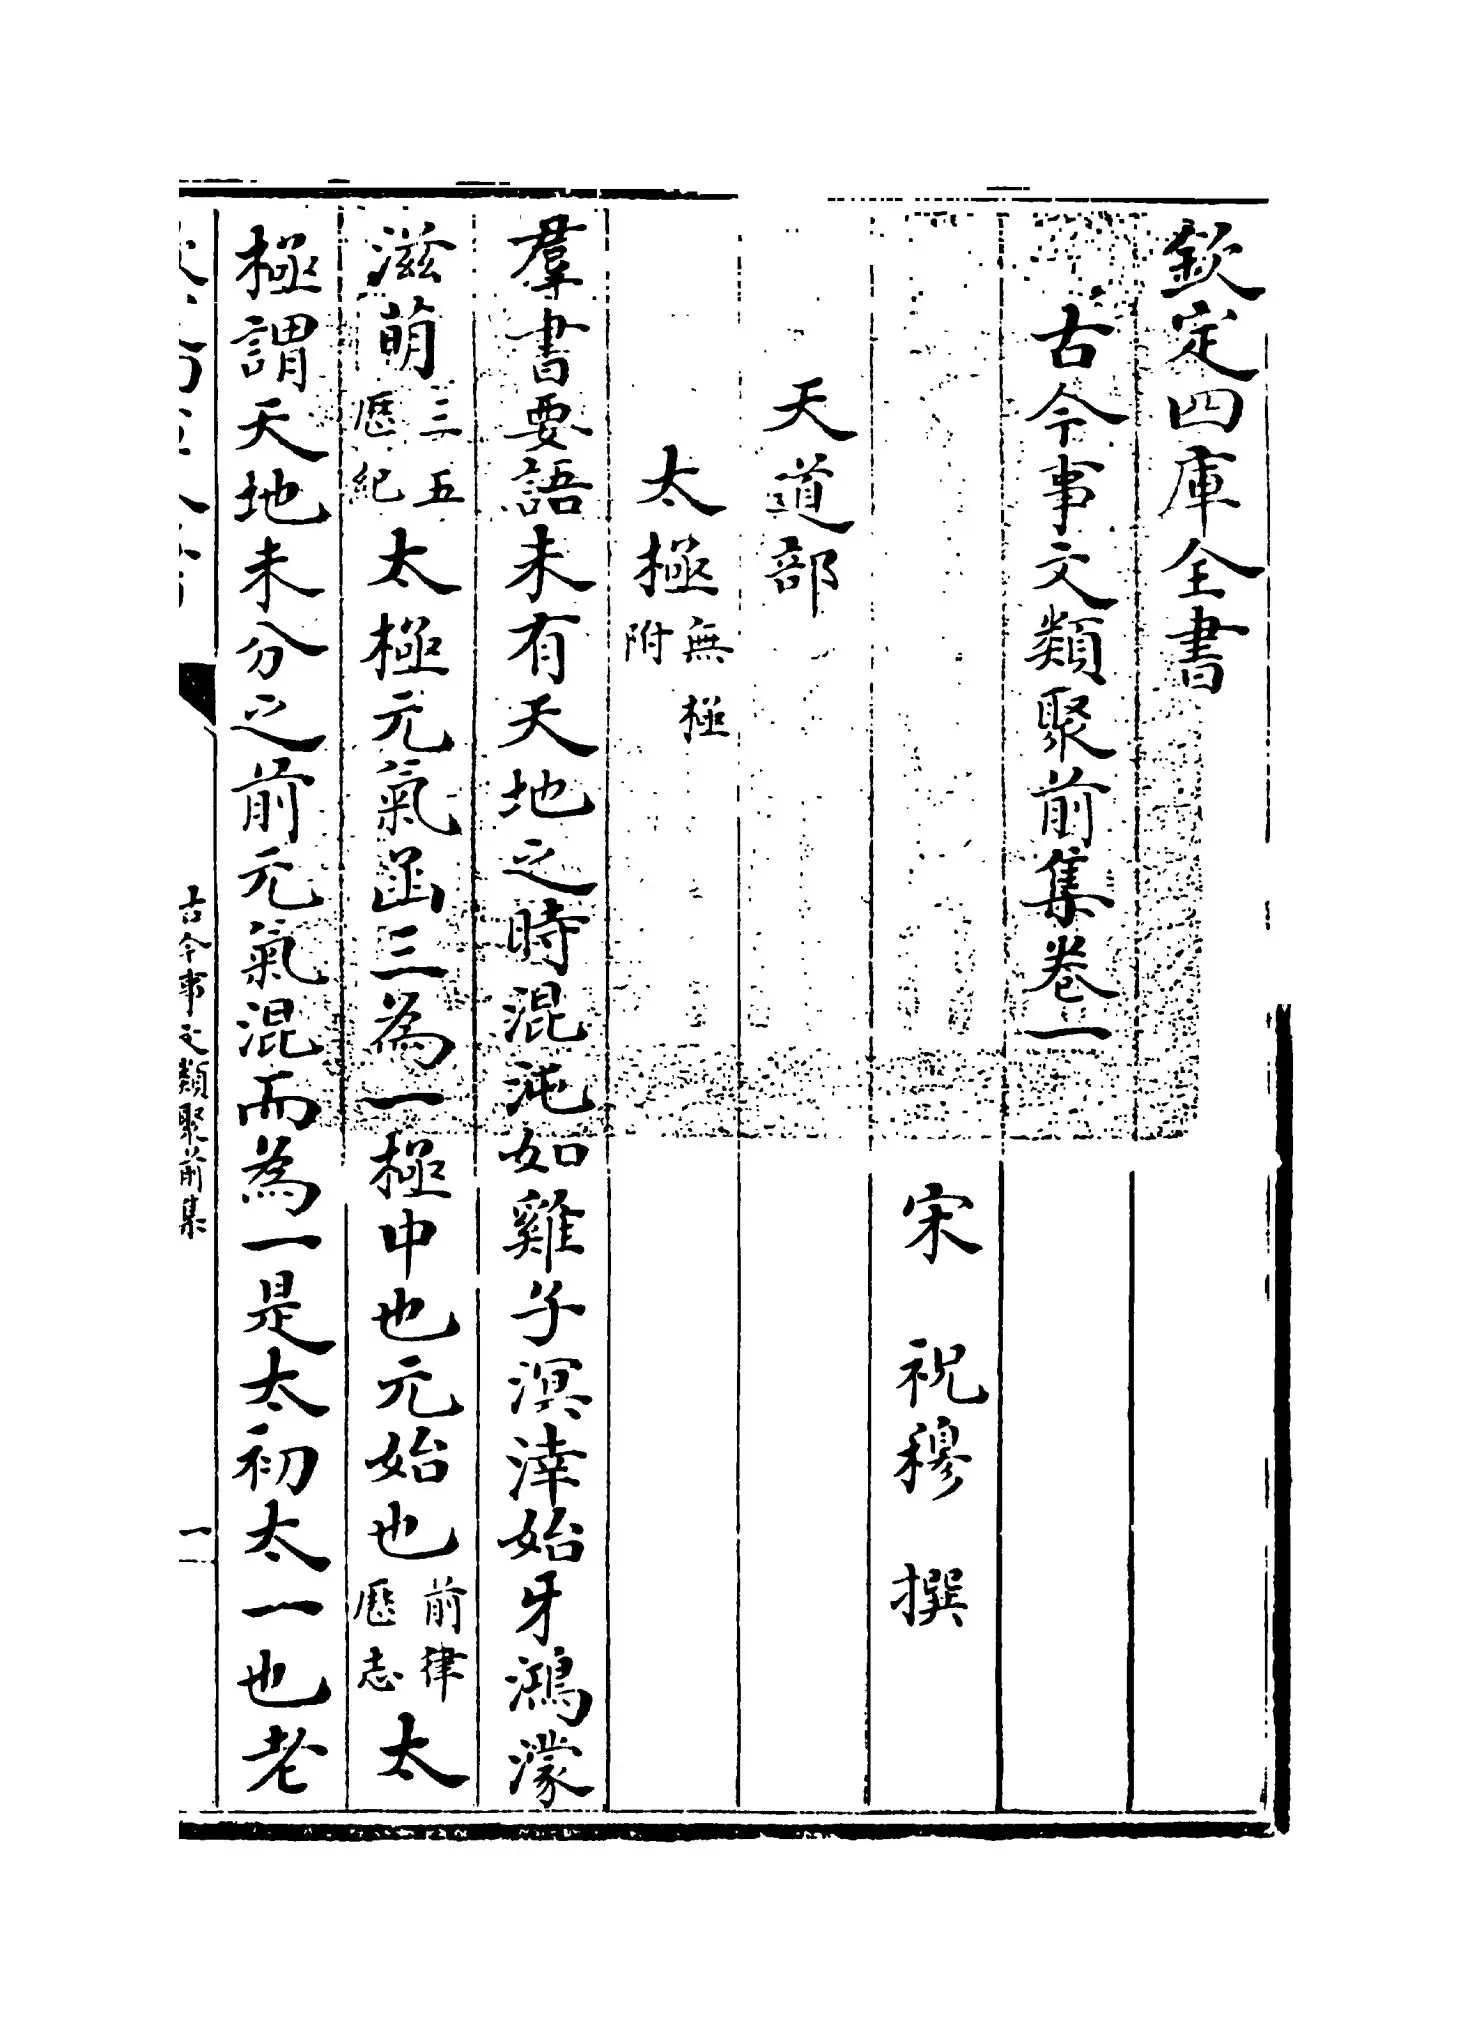 欽定四庫全書
古今事文類聚前集卷一
宋 祝穆 撰
天道部
太極無極附
羣書要語未有天地之時混沌如雞子溟涬始牙鴻濛
滋萌三五歷紀太極元氣函三為一極中也元始也前律歷志太
極謂天地未分之前元氣混而為一是太初太一也老
古今事文類聚前集
一